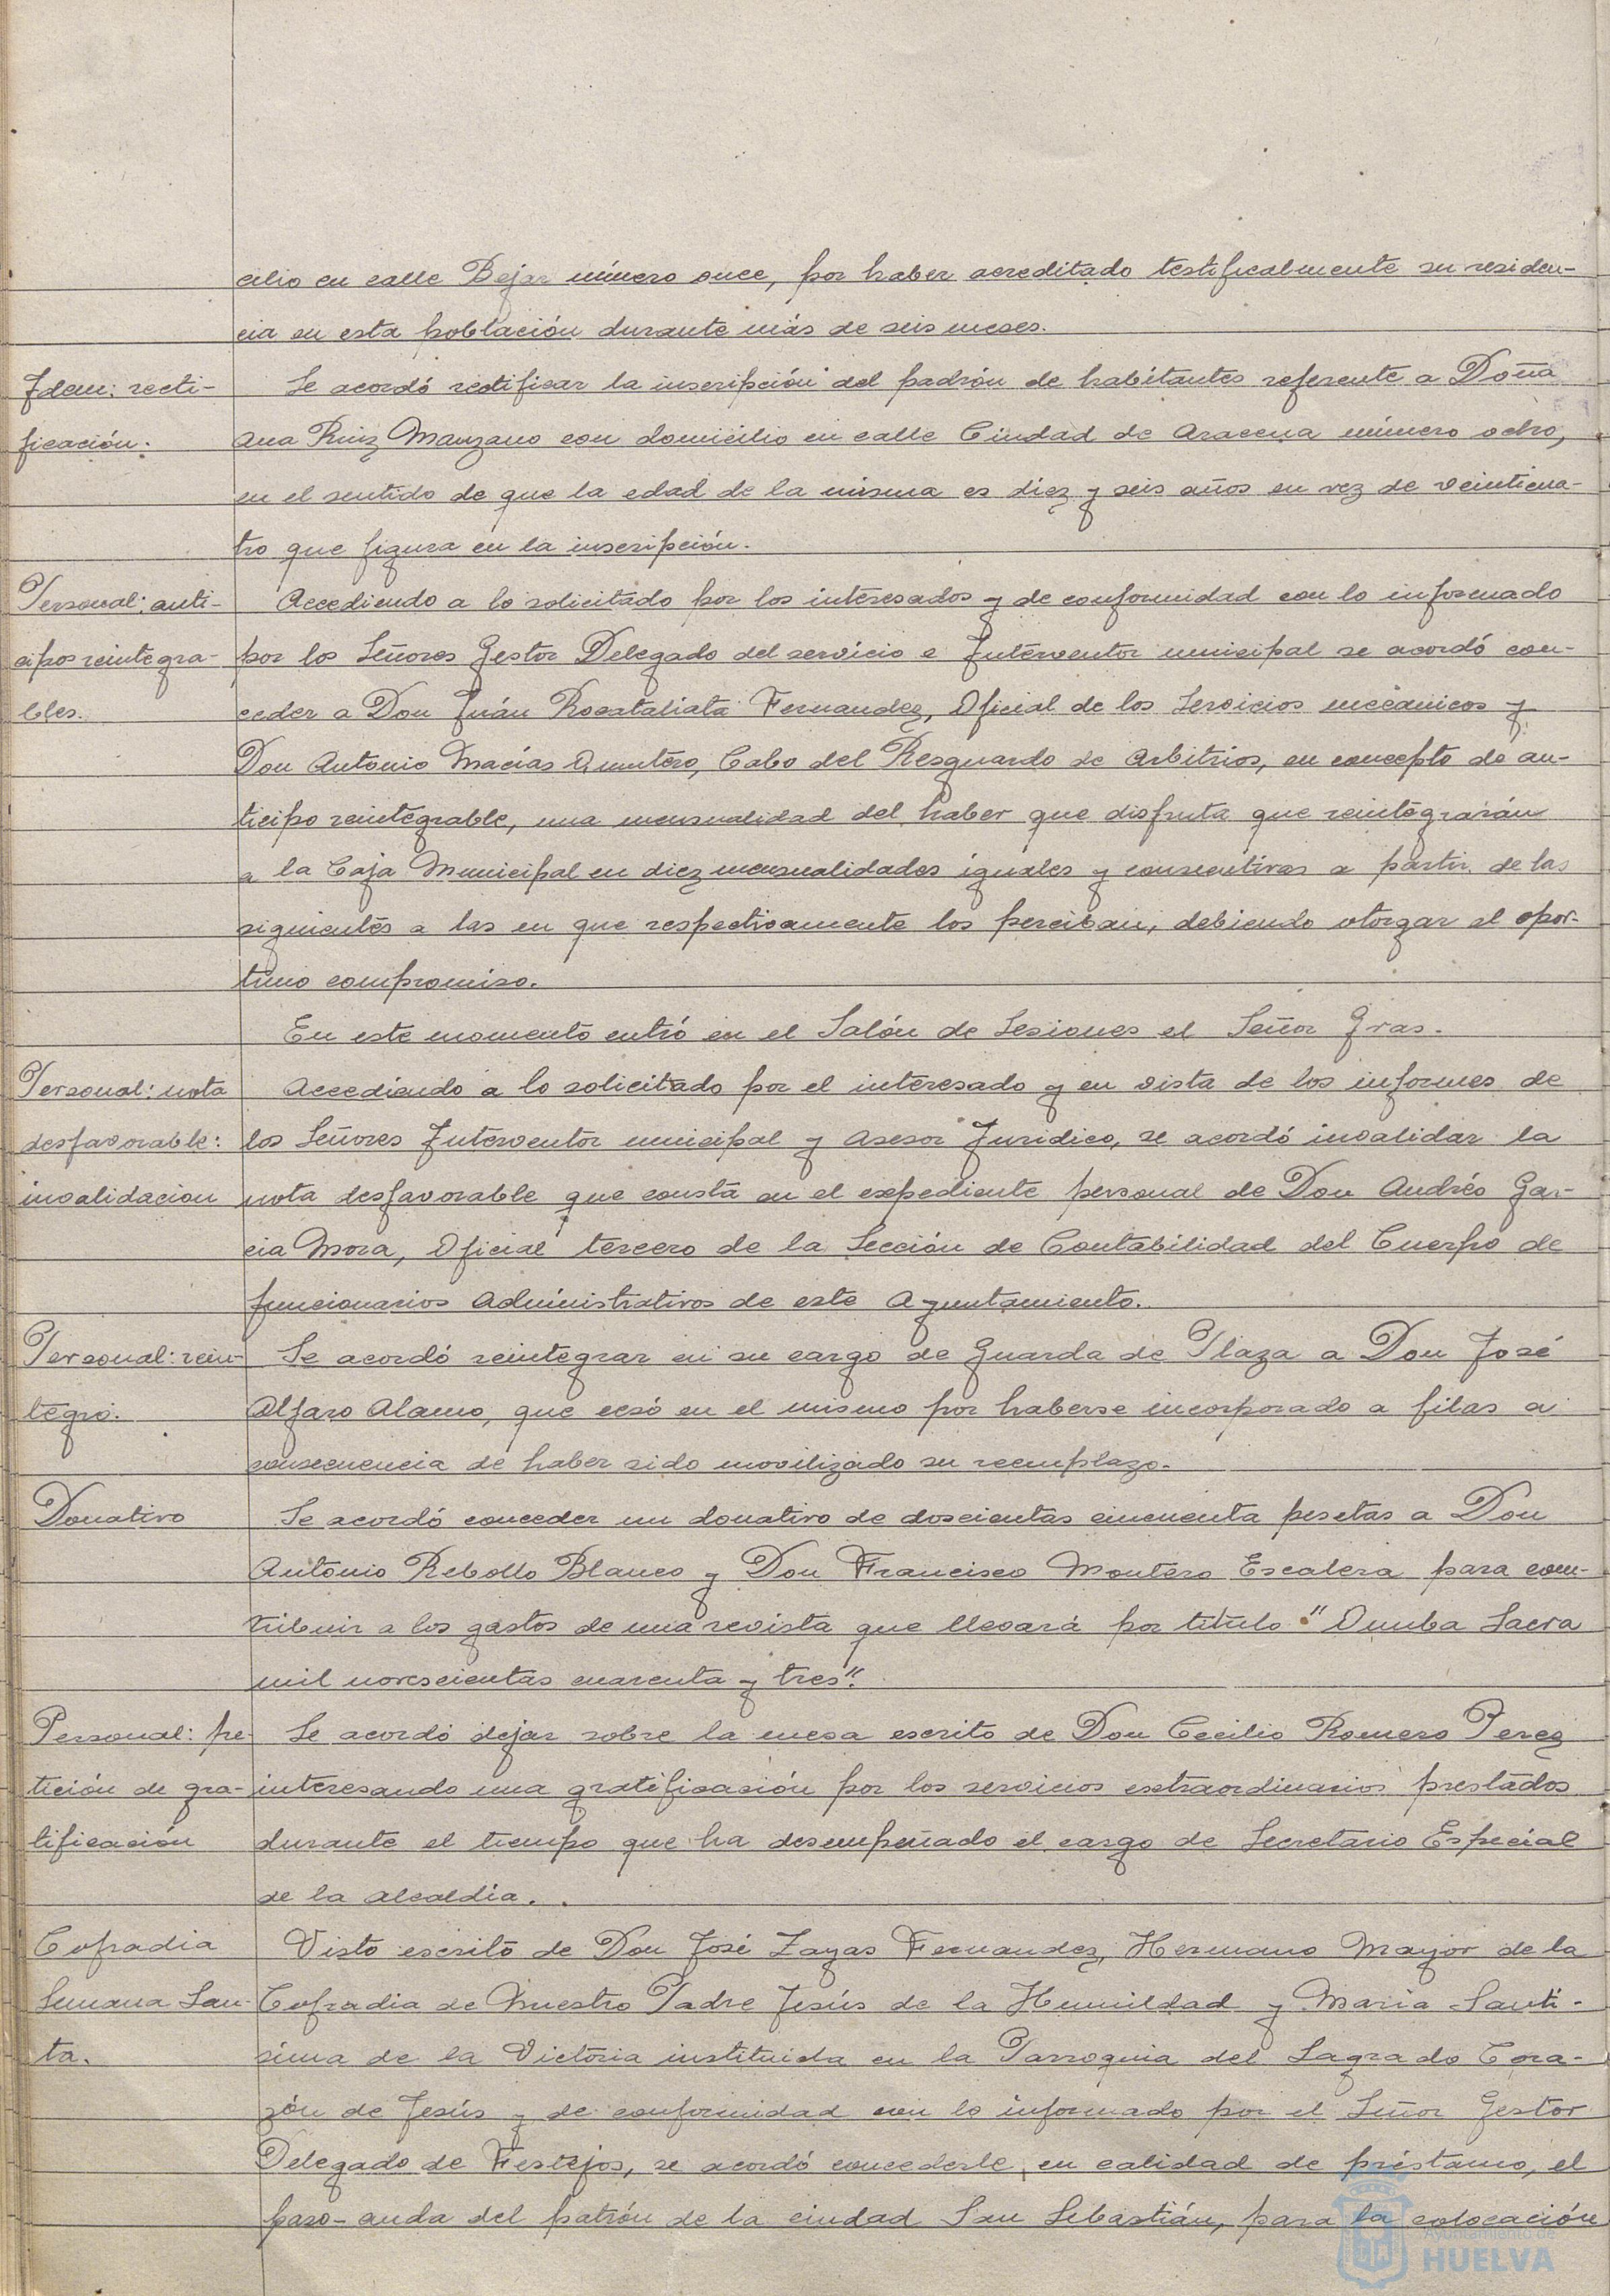 cilio en calle Bejar número once, por haber acreditado testificalmente su residen-
cia en esta población durante más de seis meses.
Idem: recti-
ficación.
Se acordó rectificar la inscripción del padrón de habitantes referente a Doña
Ana Ruiz Manzano con domicilio en calle Ciudad de Aracena número ocho,
en el sentido de que la edad de la misma es diez y seis años en vez de veinticua-
tro que figura en la inscripción.
Personal: anti-
cipos reintegra-
bles.
Accediendo a lo solicitado por los interesados y de conformidad con lo informado
por los Señores Gestor Delegado del servicio e Interventor municipal se acordó con-
ceder a Don Juán Rocataliata Fernandez, Oficial de los Servicios mecánicos y
Don Antonio Macías Quintero, Cabo del Resguardo de Arbitrios, en concepto de an-
ticipo reintegrable, una mensualidad del haber que disfruta que reintegrarán
a la Caja Municipal en diez mensualidades iguales y consecutivas a partir de las
siguientes a las en que respectivamente los perciban, debiendo otorgar el opor-
tuno compromiso.
En este momento entró en el Salón de Sesiones el Señor Gras.
Personal: nota
desfavorable:
invalidacion
Accediendo a lo solicitado por el interesado y en vista de los informes de
los Señores Interventor municipal y Asesor Juridico, se acordó invalidar la
nota desfavorable que consta en el expediente personal de Don Andrés Gar-
cia Mora, Oficial tercero de la Sección de Contabilidad del Cuerpo de
funcionarios Administrativos de este Ayuntamiento.
Personal: rein-
tegro.
Se acordó reintegrar en su cargo de Guarda de Plaza a Don José
Alfaro Alamo, que cesó en el mismo por haberse incorporado a filas a
consecuencia de haber sido movilizado su reemplazo.
Donativo
Se acordó conceder un donativo de doscientas cincuenta pesetas a Don
Antonio Rebollo Blanco y Don Francisco Montero Escalera para con-
tribuir a los gastos de una revista que llevará por titulo "Onuba Sacra
mil novescientas cuarenta y tres".
Personal: pe-
tición de gra-
tificación
Se acordó dejar sobre la mesa escrito de Don Cecilio Romero Perez
interesando una gratificación por los servicios extraordinarios prestados
durante el tiempo que ha desempeñado el cargo de Secretario Especial
de la Alcaldía.
Cofradia
Semana San-
ta.
Visto escrito de Don José Zayas Fernandez, Hermano Mayor de la
Cofradia de Nuestro Padre Jesús de la Humildad y Maria Santi-
sima de la Victoria instituida en la Parroquia del Sagrado Cora-
zón de Jesús y de conformidad con lo informado por el Señor Gestor
Delegado de Festejos, se acordó concederle, en calidad de préstamo, el
paso-anda del patrón de la ciudad San Sebastián, para la colocación
Ayuntamiento de
HUELVA